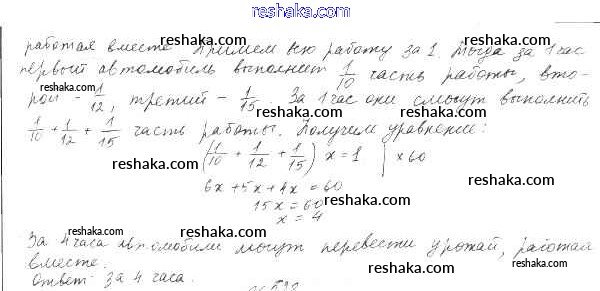 reshaka.com
работая вместе. Примем всю работу за 1. Тогда за 1 час
reshaka.com
первый автомобиль выполнит 1/10 часть работы, вто-
reshaka.com reshaka.com
рой - 1/12, третий - 1/15. За 1 час они смогут выполнить
1/10 + 1/12 + 1/15 часть работы. Получим уравнение:
reshaka.com reshaka.com
(1/10 + 1/12 + 1/15) x = 1 | x 60
reshaka.com
6x + 5x + 4x = 60
reshaka.com
15x = 60
reshaka.com
x = 4
reshaka.com reshaka.com
За 4 часа автомобили могут перевести урожай, работая
reshaka.com
вместе.
reshaka.com
Ответ: за 4 часа.
reshaka.com